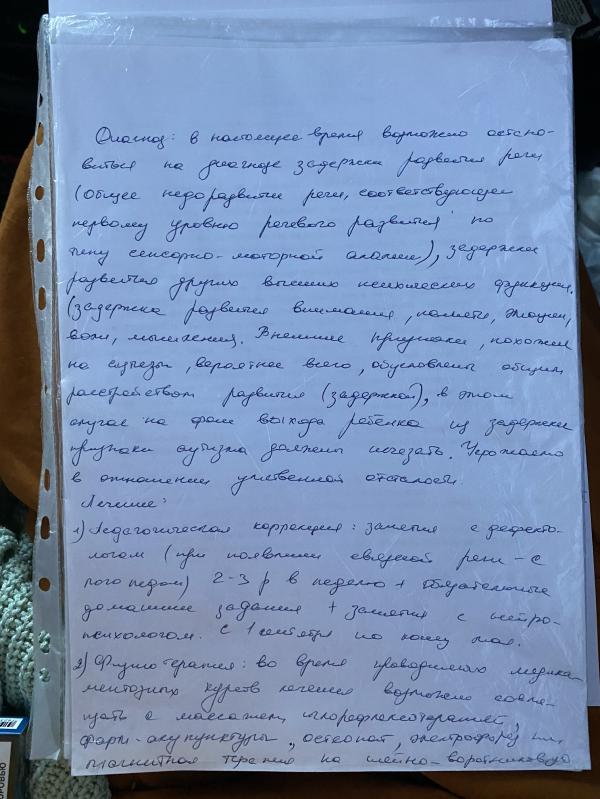 Диагноз: в настоящее время возможно остано-
виться на диагнозе задержки развития речи
(общее недоразвитие речи, соответствующее
первому уровню речевого развития по
типу сенсорно-моторной алалии), задержки
развития других высших психических функций.
(задержка развития внимания, памяти, эмоций,
воли, мышления. Внешние признаки, похожие
на аутизм, вероятнее всего, обусловлены общим
расстройством развития (задержкой), в этом
случае на фоне выхода ребёнка из задержки
признаки аутизма должны исчезать. Угрожаема
в отношении умственной отсталости.
Лечение:
1) Педагогическая коррекция: занятия с дефекто-
логом (при появлении фразовой речи – с
логопедом) 2-3 р в неделю + обязательные
домашние задания + занятия с нейро-
психологом. С 1 сентября по конец мая.
2) Физиотерапия: во время проводимых медика-
ментозных курсов лечения возможно совме-
щать с массажем, иглорефлексотерапией,
фарм-акупунктуры, остеопат, электрофорез или
магнитная терапия на шейно-воротниковую
ОРОВЬЮ